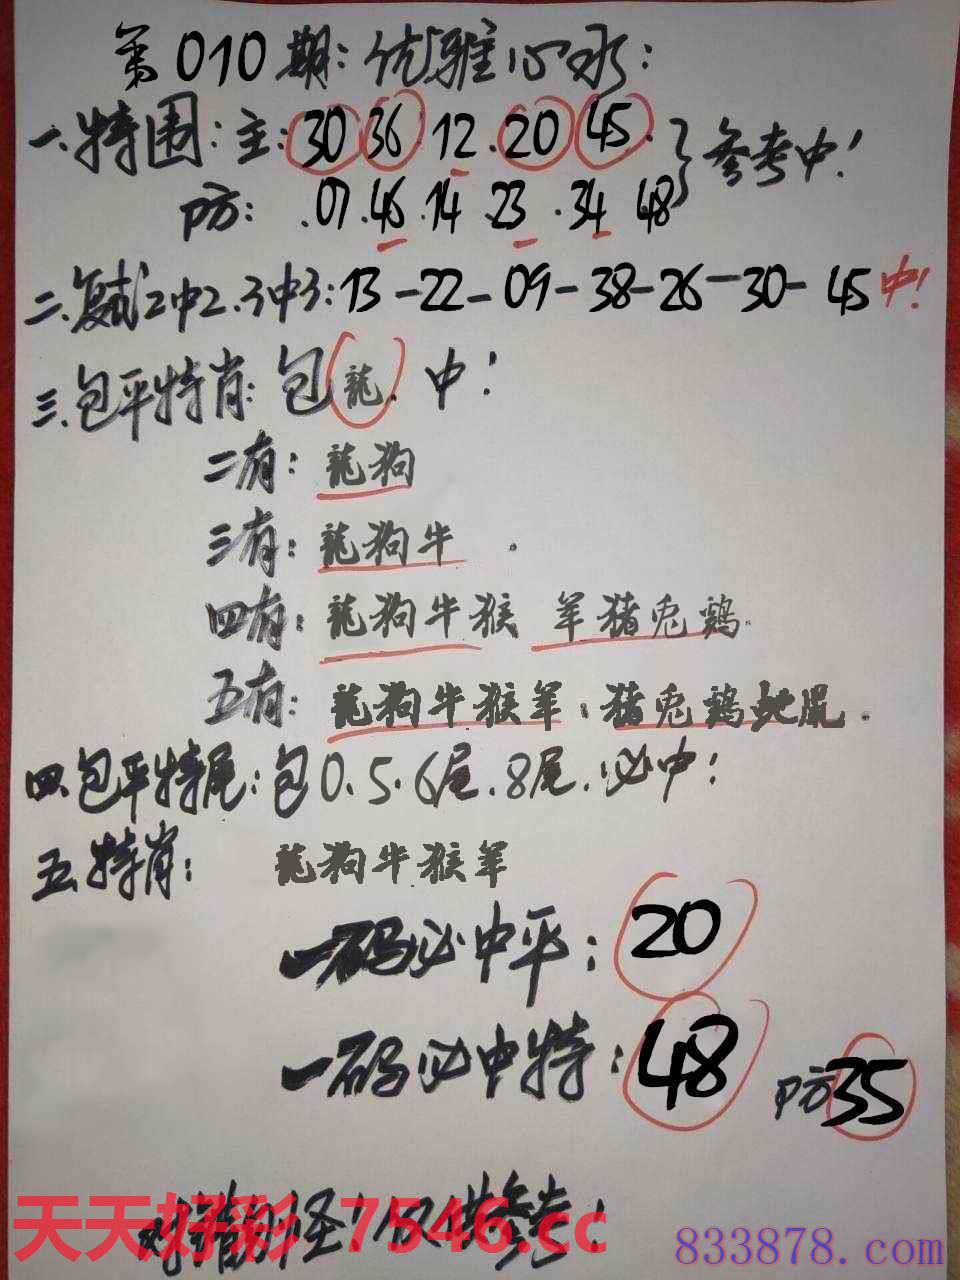 第010期：优雅心水：
一.特围：主：30 36·12·20 45· 参考中！
防：.07·46·14·23·34 48
二.复式2中2.3中3：13-22-09-38-26-30-45中！
三.包平特肖：包龍.中！
二有：龍狗
三有：龍狗牛.
四有：龍狗牛猴 羊猪兎鷄.
五有：龍狗牛猴羊：猪兎鷄虵鼠.
四.包平特尾：包0.5.6尾.8尾.必中！
五.特肖：龍狗牛猴羊
一码必中平：20
一码必中特：48 防35
天天好彩 7546.cc
仅供参考！
833878.com